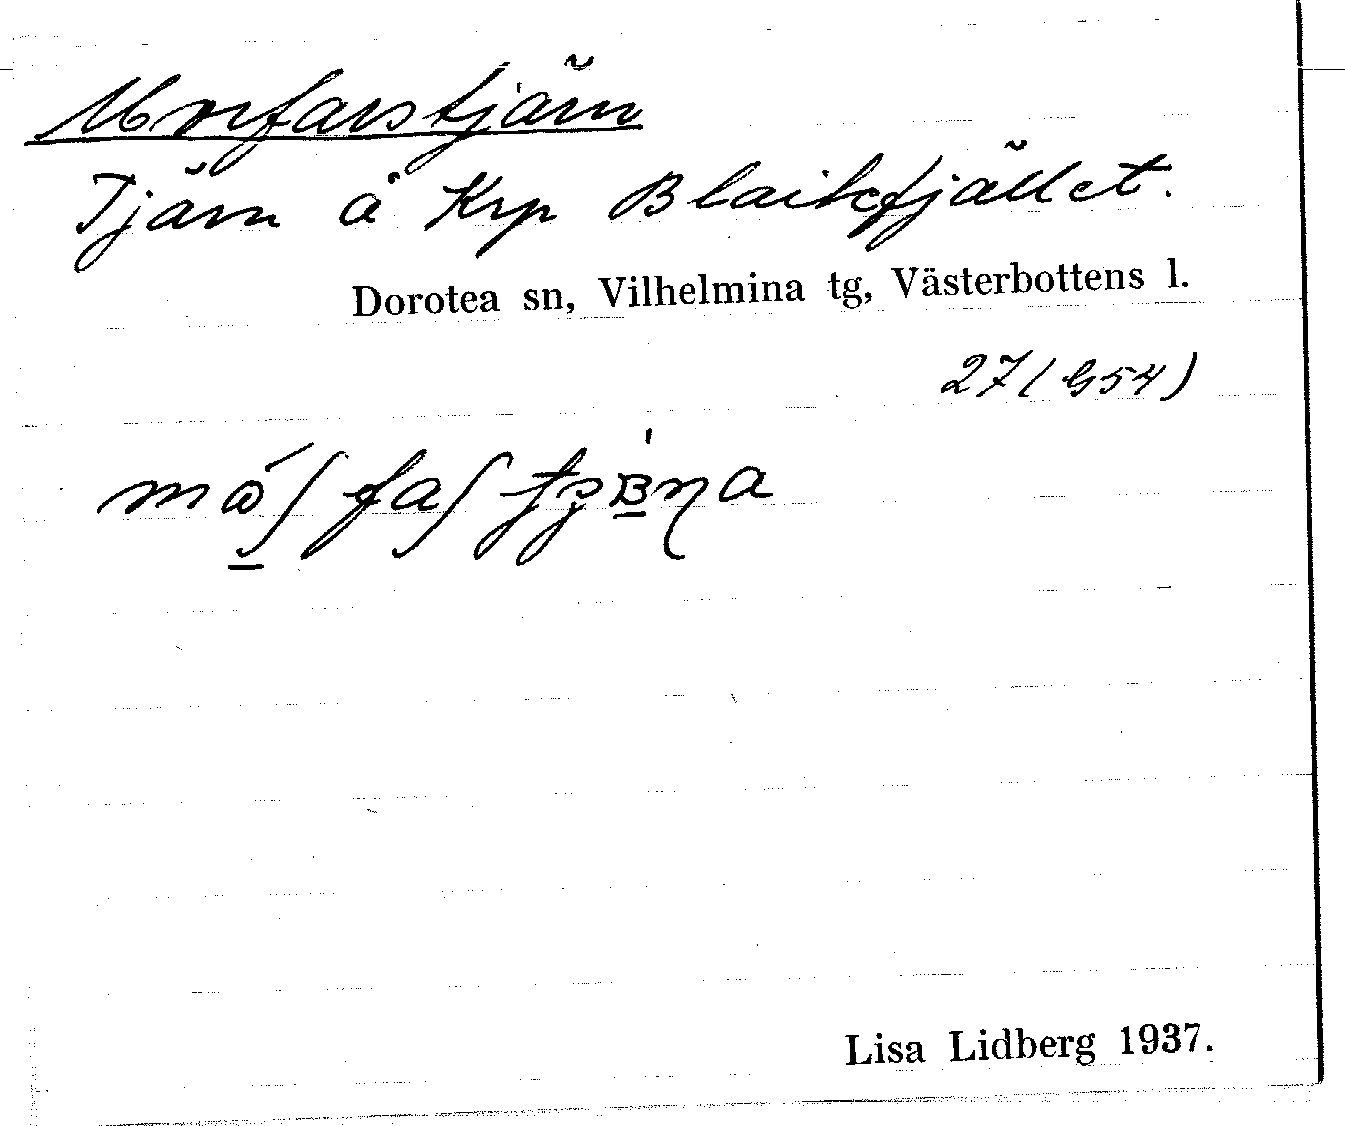 Morfarstjärn
Tjärn å Krp Blaikfjället.
Dorotea sn, Vilhelmina tg, Västerbottens l.
27 (G54)
Lisa Lidberg 1937.